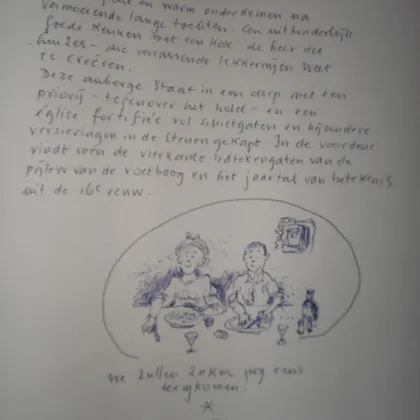 en warm onderkomen na
vermoeiende lange tochten. Een uitzonderlijk
goede keuken met een kok de heer des
huizes - die verrassende lekkernijen weet
te creëren.
Deze auberge staat in een dorp met een
priorij - tegenover het hotel - en een
église fortifiée vol schietgaten en bijzondere
versieringen in de steen gekapt. In de voordeur
vindt men de vierkante littekengaten van de
pijlen van de voetboog en het jaartal van betekenis
uit de 16e eeuw.
we zullen zeker nog eens
terugkomen!